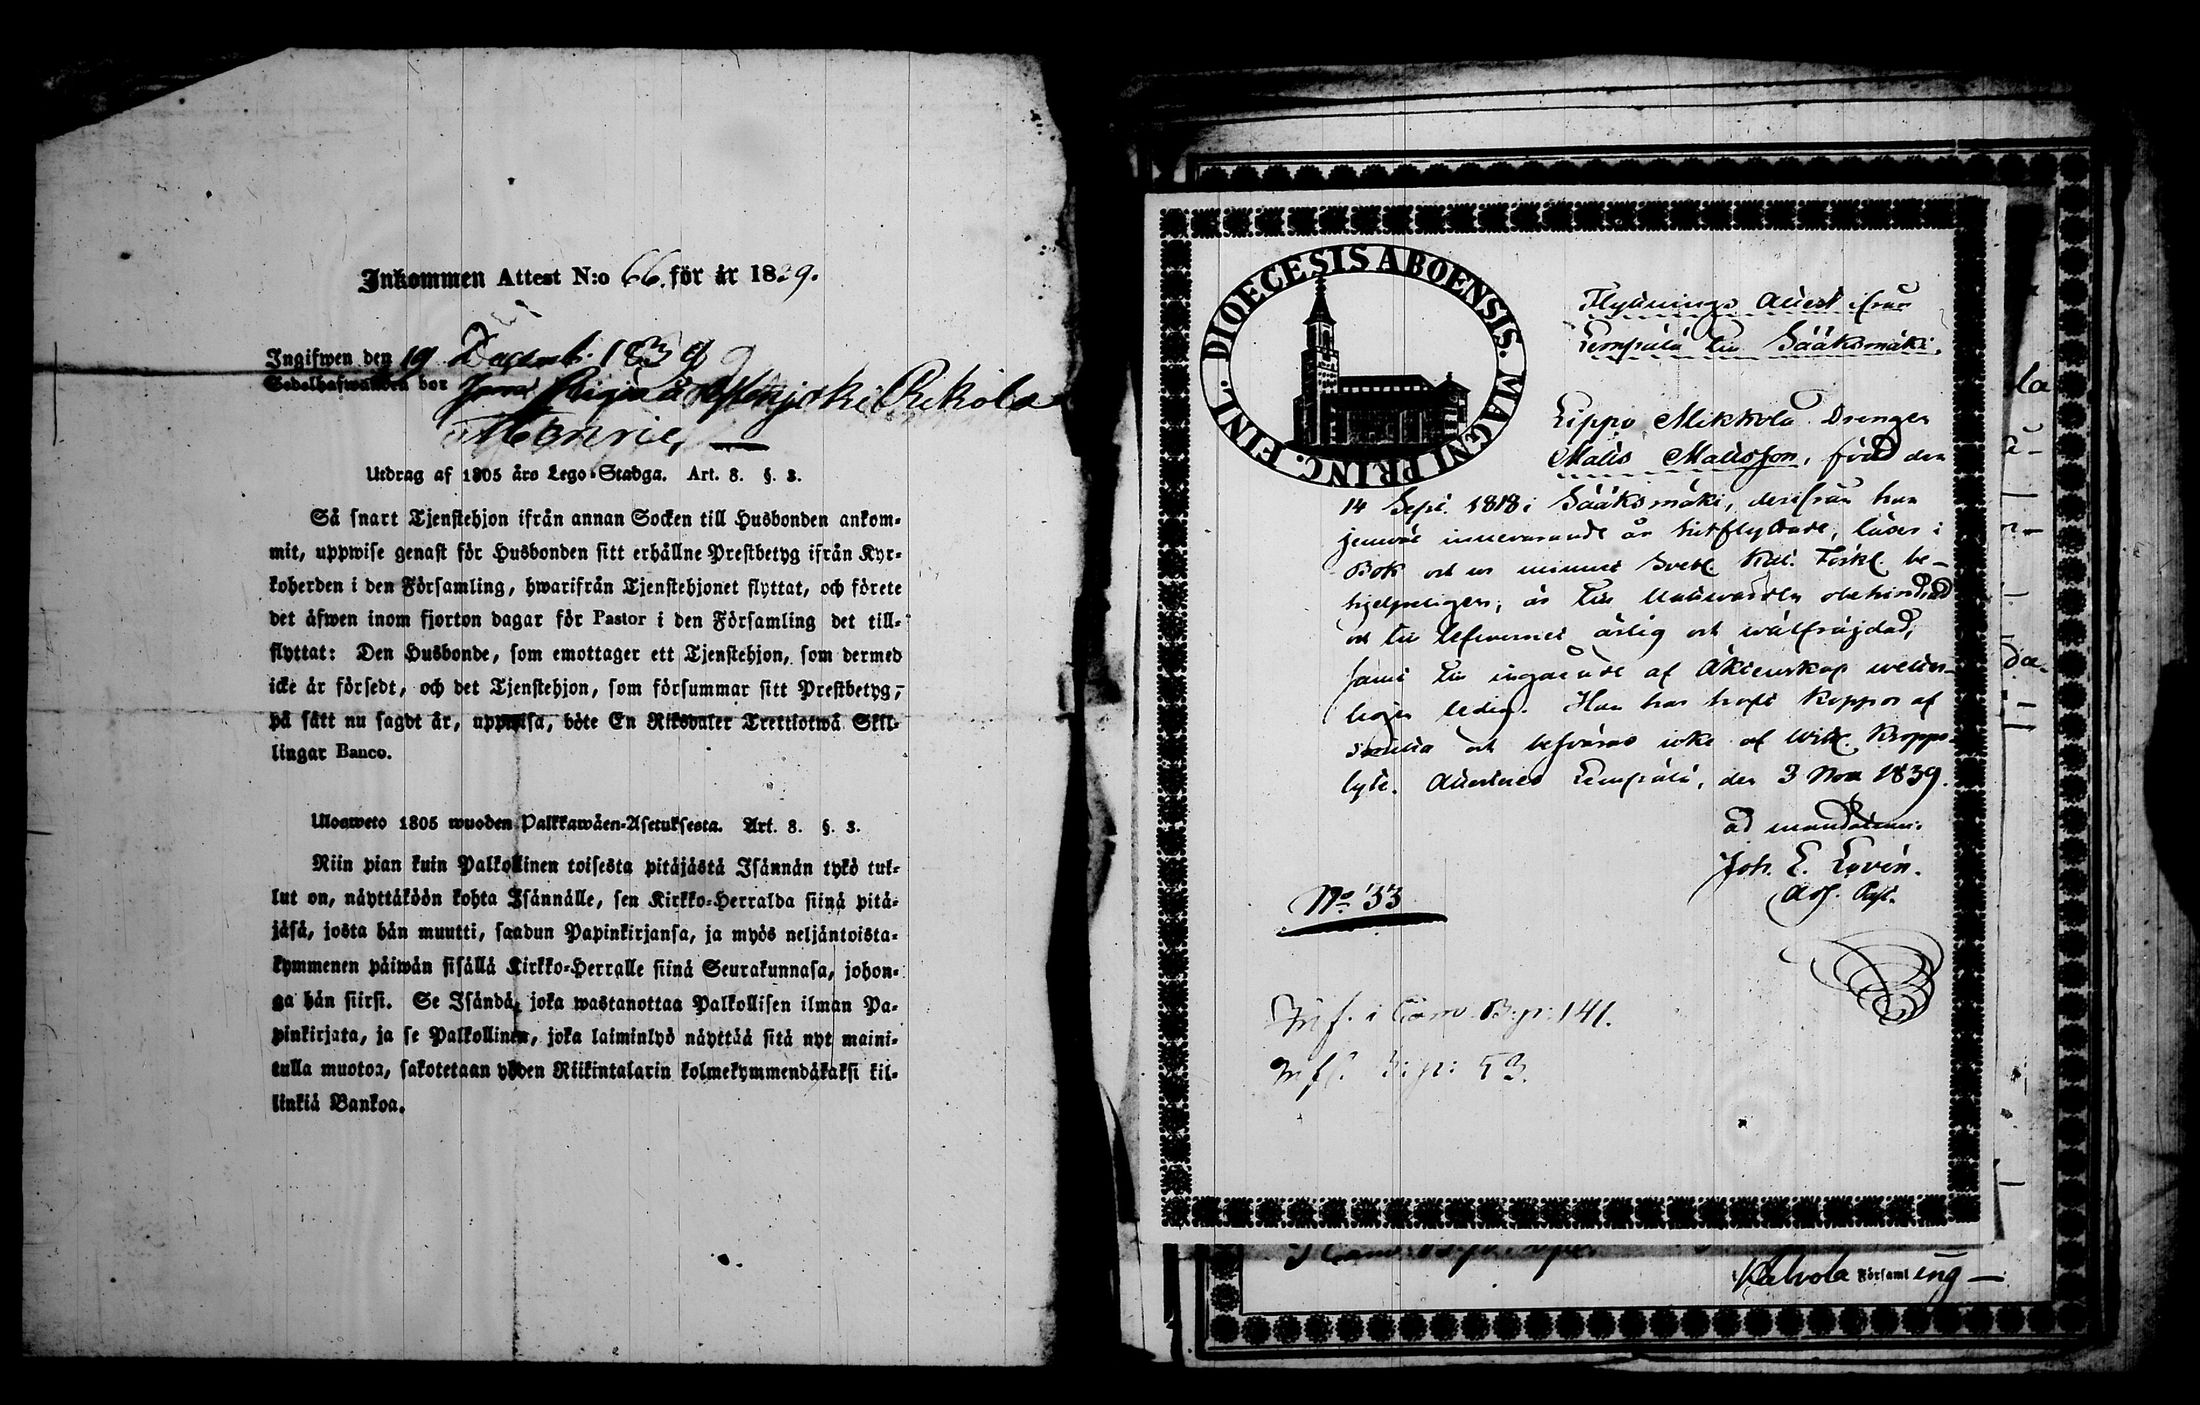 Inkommen Attest N:o 66. för år 1839.
Ingifwen den 19 Decemb. 1839
Sedelhafwanden bor
Utdrag af 1805 års Lego-Stadga. Art. 8. §. 3.
Så snart Tjenstehjon ifrån annan Socken till Husbonden ankom-
mit, uppwise genast för Husbonden sitt erhållne Prestbetyg ifrån Kyr-
koherden i den Församling, hwarifrån Tjenstehjonet flyttat, och förete
det äfwen inom fjorton dagar för Pastor i den Församling det till-
flyttat: Den Husbonde, som emottager ett Tjenstehjon, som dermed
icke är försedt, och det Tjenstehjon, som försummar sitt Prestbetyg,
på sätt nu sagdt är, uppwisa, böte En Riksdaler Trettiotwå Skil-
lingar Banco.
Ulosweto 1805 wuoden Palkkawäen-Asetuksesta. Art. 8. §. 3.
Niin pian kuin Palkollinen toisesta pitäjästä Isännän tykö tul-
lut on, näyttäköön kohta Isännälle, sen Kirkko-Herralda siinä pitä-
jäsä, josta hän muutti, saadun Papinkirjansa, ja myös neljäntoista-
kymmenen päiwän sisällä Kirkko-Herralle siinä Seurakunnasa, johon-
ga hän siirsi. Se Isändä, joka wastanottaa Palkollisen ilman Pa-
pinkirjata, ja se Palkollinen, joka laiminlyö näyttää sitä nyt maini-
tulla muotoa, sakotetaan yhden Riikintalarin kolmekymmendäkaksi kil-
linkiä Bankoa.
DIOECESIS ABOENSIS. MAGNI PRINC. FINL.
Flyttnings Attest ifrån
Lempälä till Sääksmäki.
Lippo Mikkola Drengen
Matts Mattsson, född den
14 Sept. 1818 i Sääksmäki, derifrån han
jemväl innevarande år hitflyttade, läser i
Bok och ur minnet Svebel. Kat. Förkl. be-
hjelpeligen, är till Nattvarden obehindrad
och till lefvernet ärlig och wälfräjdad,
samt till ingående af Äktenskap weder-
börligen ledig. Han har haft Koppor af
och besväras icke af Wen. Kropps-
lyte. Attesteras Lempälä, den 3 Nov 1839.
ad mandatum:
Joh. E. Lovén.
Adj. Past.
No 33
Inf. i Com. B. p: 141.
p: 53.
Kalvola Församling